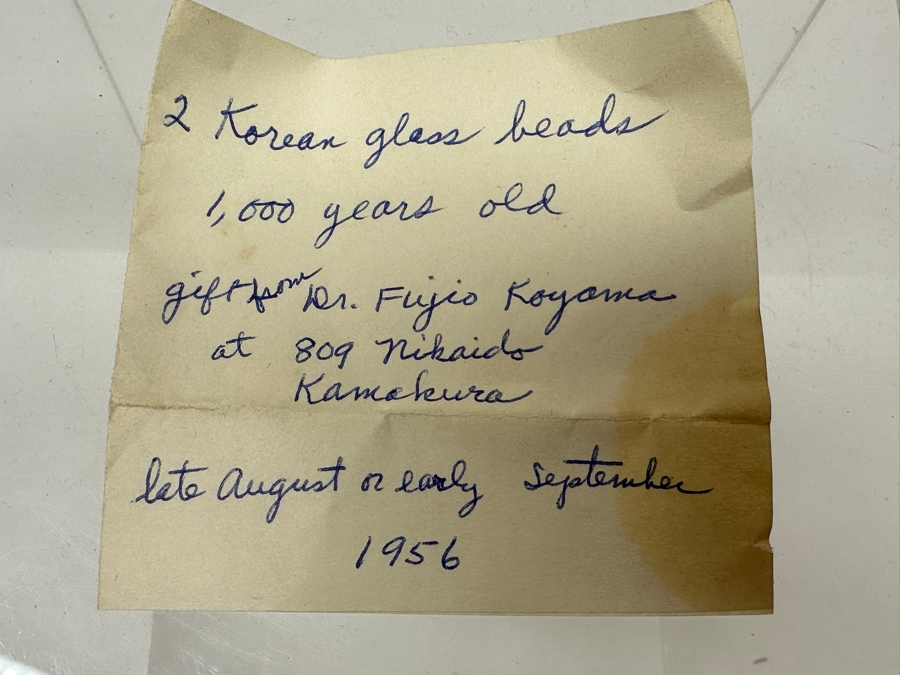 2 Korean glass beads
1,000 years old
gift from Dr. Fujio Koyama
at 809 Nikaido
Kamakura
late August or early September
1956